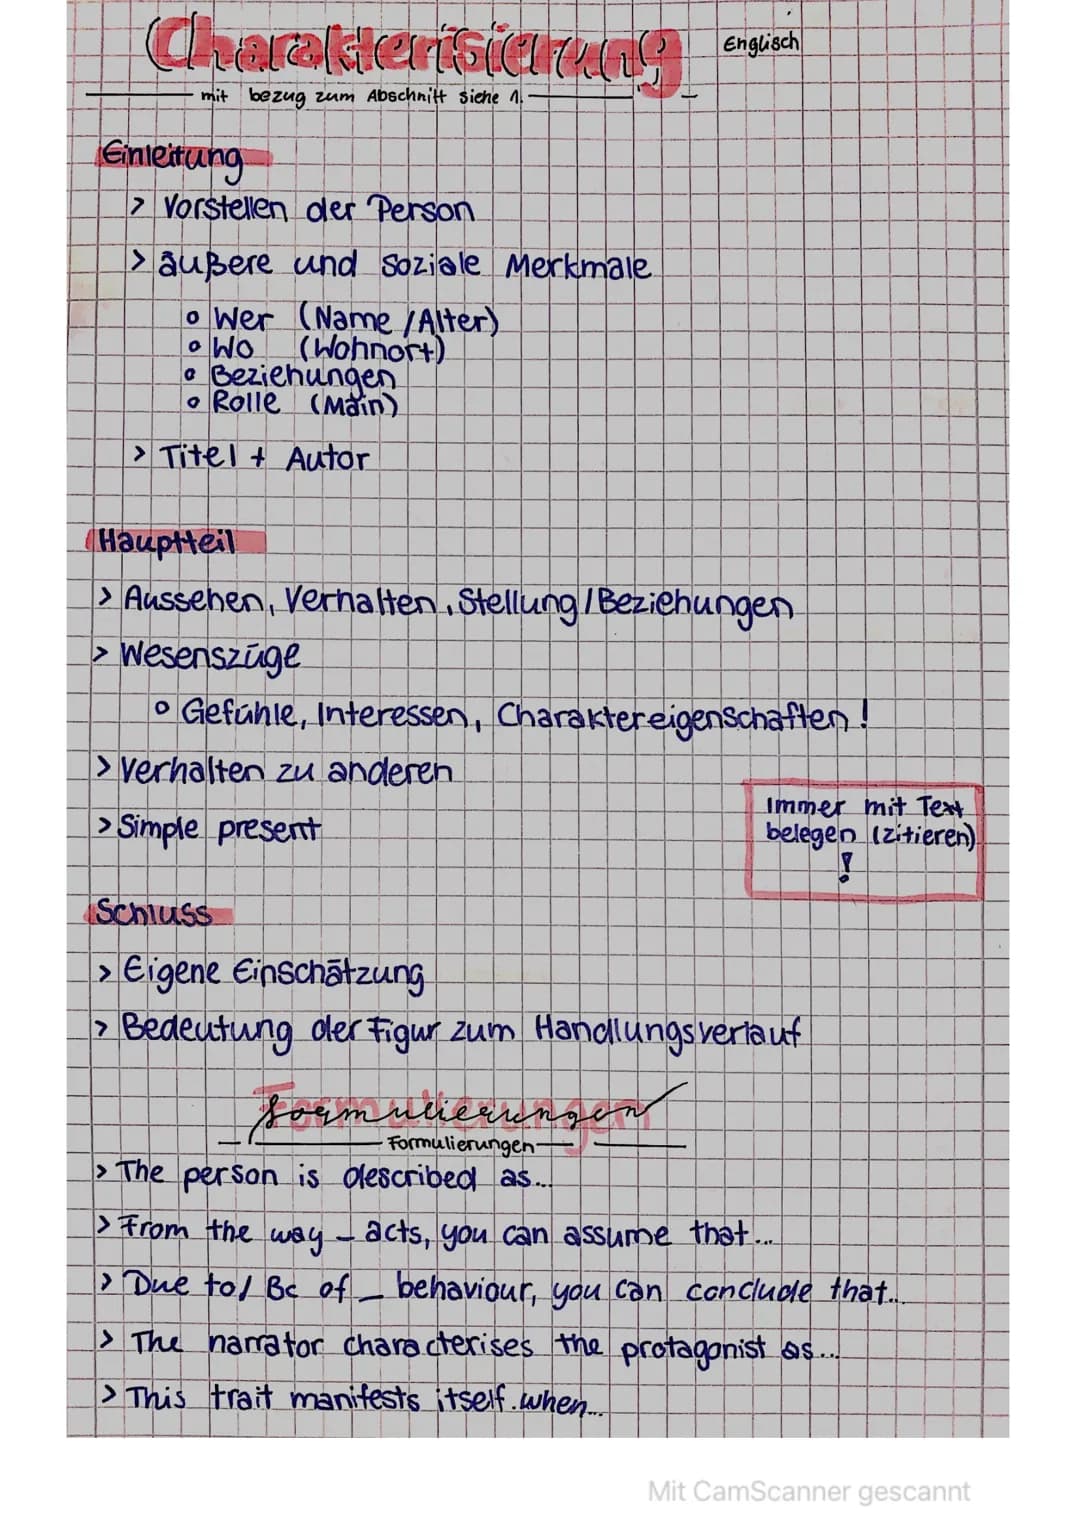 Charakterisierung
Englisch
mit bezug zum Abschnitt siehe 1.
Einleitung
> Vorstellen der Person
> äußere und soziale Merkmale
o Wer (Name / Alter)
o Wo (Wohnort)
o Beziehungen
o Rolle (Main)
> Titel + Autor
Hauptteil
> Aussehen, Verhalten, Stellung / Beziehungen
> Wesenszüge
o Gefühle, Interessen, Charaktereigenschaften!
> Verhalten zu anderen
> Simple present
Immer mit Text
belegen (zitieren)
!
Schluss
> Eigene Einschätzung
> Bedeutung der Figur zum Handlungsverlauf
Formulierungen
Formulierungen
> The person is described as...
> From the way _ acts, you can assume that...
> Due to / Bc of _ behaviour, you can conclude that...
> The narrator characterises the protagonist as...
> This trait manifests itself when...
Mit CamScanner gescannt